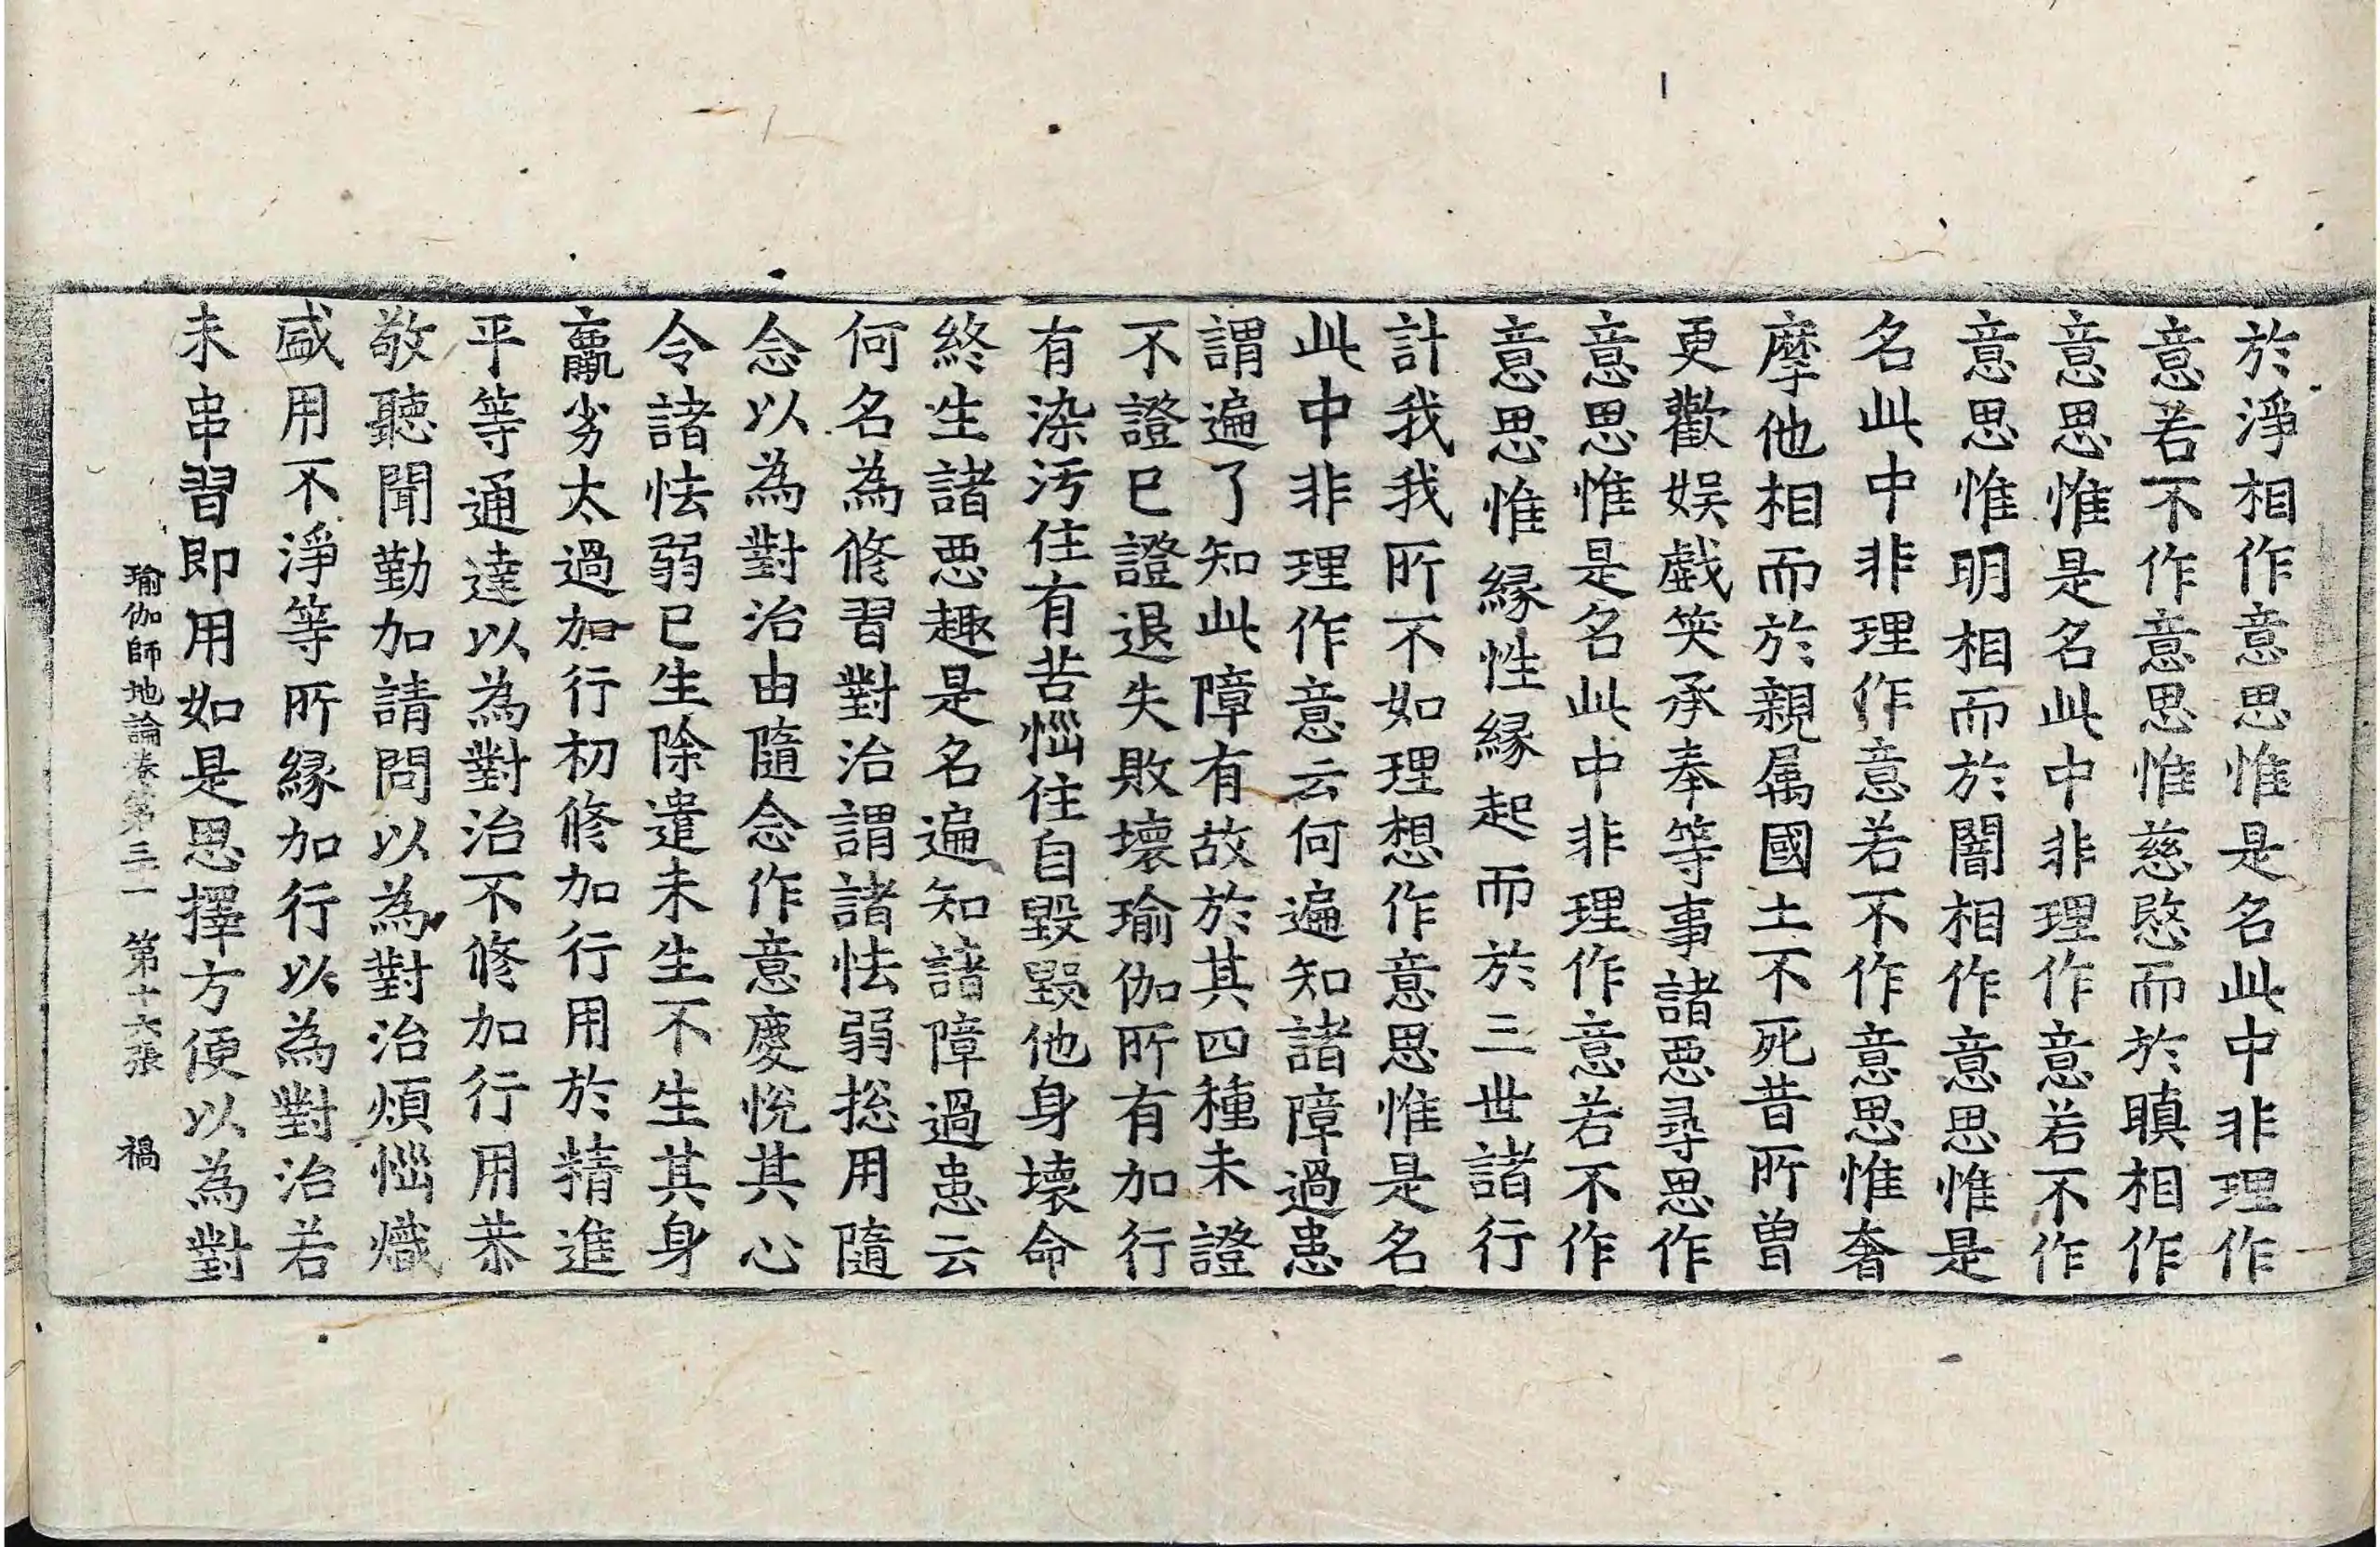 於淨相作意思惟是名此中非理作
意若不作意思惟慈愍而於瞋相作
意思惟是名此中非理作意若不作
意思惟明相而於闇相作意思惟是
名此中非理作意若不作意思惟奢
摩他相而於親属國土不死昔所曾
更歡娛戲笑承奉等事諸惡尋思作
意思惟是名此中非理作意若不作
意思惟縁性縁起而於三世諸行
計我我所不如理想作意思惟是名
此中非理作意云何遍知諸障過患
謂遍了知此障有故於其四種未證
不證已證退失敗壞瑜伽所有加行
有染污住有苦惱住自毀毀他身壞命
終生諸惡趣是名遍知諸障過患云
何名為修習對治謂諸怯弱捴用隨
念以為對治由隨念作意慶悅其心
令諸怯弱已生除遣未生不生其身
羸劣太過加行初修加行用於精進
平等通達以為對治不修加行用恭
敬聽聞勤加請問以為對治煩惱熾
盛用不淨等所縁加行以為對治若
未串習即用如是思擇方便以為對
瑜伽師地論卷第三一　第十六張　禍